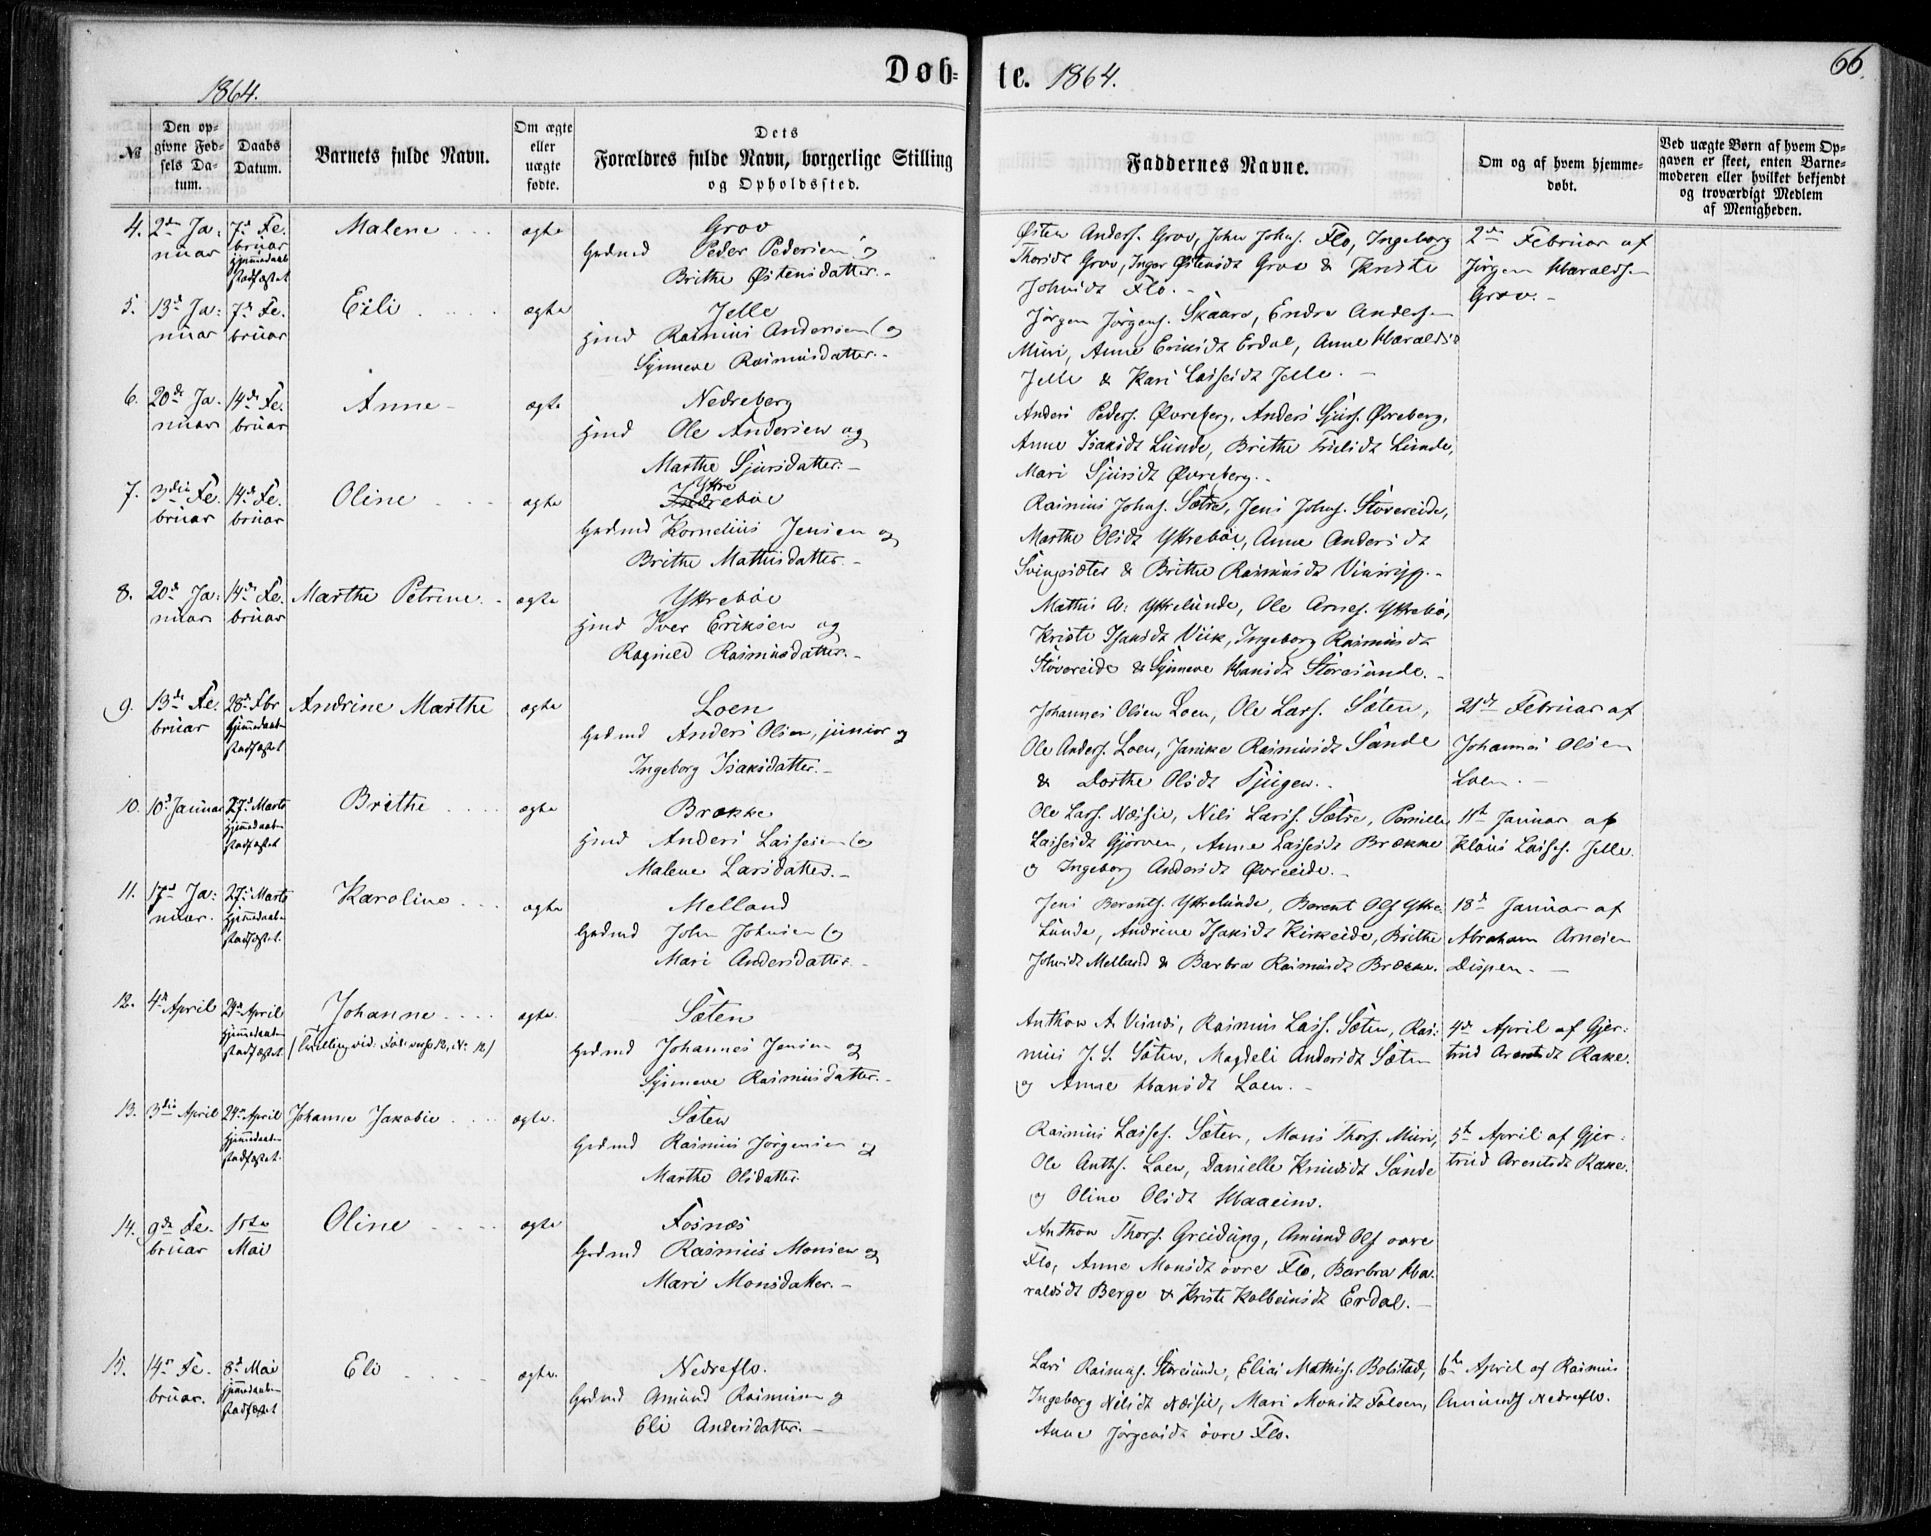 Døb-
te. 1864.
66.
1864.
№
Den opgivne Fødsels Datum.
Daabs Datum.
Barnets fulde Navn.
Om ægte eller uægte fødte.
Dets
Forældres fulde Navn, borgerlige Stilling
og Opholdssted.
Faddernes Navne.
Om og af hvem hjemmedøbt.
Ved uægte Børn af hvem Opgaven er skeet, enten Barnemoderen eller hvilket bekjendt og troværdigt Medlem af Menigheden.
4. 2den Januar 7d Februar Hjemmedaab stadfæstet Malene ægte
Grov
Grdmd Peder Pedersen og
Brithe Østensdatter.
Østen Anders. Grov, John Johns. Flo, Ingeborg
Thorsdt Grov, Inger Østensdt Grov & Kriste
Johnsdt Flo.
2den Februar af
Jørgen Haraldsen
Grov.
5. 13d Januar 7d Februar Eili ægte
Jelle
Hmd Rasmus Andersen og
Synneve Rasmusdatter.
Jørgen Jørgens. Skaare, Endre Andersen
Muri, Anne Eriksdt Erdal, Anne Haraldsd
Jelle & Kari Lassesdt Jelle.
6. 20de Januar 14de Februar Anne ægte
Nedreberg
Hmd Ole Andersen og
Marthe Sjursdatter.
Anders Peders. Øvreberg, Anders Sjurs. Øvreberg,
Anne Isaksdt Lunde, Brithe Lunde,
Mari Sjursdt Øvreberg.
7. 3die Februar 14d Februar Oline ægte
Yttrebøe
Grdmd Kornelius Jensen og
Brithe Mathisdatter.
Rasmus Johns. Sætre, Jens Johns. Støvereide,
Marthe Olsdt Yttrebøe, Anne Andersdt
& Brithe Rasmusdt
8. 20d Januar 14d Februar Marthe Petrine ægte
Yttrebøe
Hmd Iver Eriksen og
Ragnild Rasmusdatter.
Mathis A: Yttrelunde, Ole Arnes. Yttrebø,
Kriste Isaksdt Viik, Ingeborg Rasmusdt
Støvereide & Synneve Hansdt Storesunde.
9. 13de Februar 28d Fbr Hjemmedaaben stadfæstet Andrine Marthe ægte
Loen
Grdmd Anders Olsen, junior og
Ingeborg Isaksdatter.
Johannes Olsen Loen, Ole Lars. Sæten,
Ole Anders. Loen, Janike Rasmusdt Sande
& Dorthe Olsdt Tjugen.
21de Februar af
Johannes Olsen
Loen.
10. 10d Januar 27d Marts Hjemmedaaben stadfæstet Brithe ægte
Brække
Hmd Anders Lassesen og
Malene Larsdatter.
Ole Lars. Næsje, Nils Lars. Sætre, Pernille
Lassesdt Gjørven, Anne Lassesdt Brække
og Ingeborg Andersdt Øvreeide.
11t Januar af
Klaus Lasses. Jelle.
11. 17d Januar. 27d Marts Hjemmedaaben stadfæstet. Karoline ægte
Melland
Grdmd John Johnsen og
Mari Andersdatter.
Jens Berents. Yttrelunde, Berent Ols Yttre
Lunde, Andrine Isaksdt Kirkeide, Brithe
Johnsdt Melland & Barbra Rasmusdt Brække.
18d Januar af
Abraham Arnesen
Dispen.
12. 4de April 24de April Hjemmedaaben stadfæstet Johanne ægte.
Sæten
Grdmd Johannes Jensen og
Synneve Rasmusdatter.
Anthon A. Rasmus Lass. Sæten, Rasmus
J. S. Sæten, Magdeli Andersdt Sæten
og Anne Hansdt Loen.
4de April af Gjertrud
Arentsdt Rake.
13. 3die April 24de April Hjemmedaaben stadfæstet. Johanne Jakobie ægte.
Sæten
Grdmd Rasmus Jørgensen og
Marthe Olsdatter
Rasmus Lasses. Sæten, Mons Thors. Muri,
Ole Anths. Loen, Danielle Knudsdt Sande
og Oline Olsdt
5te April af Gjertrud
Arentsdt Rake.
14. 9de Februar 1ste Mai Oline ægte
Fosnæs
Grdmd Rasmus Monsen og
Mari Monsdatter.
Anthon Thors. Greidung, Amund Ols øvre
Flo, Anne Monsdt øvre Flo, Barbra Haraldsdt
Berge & Kriste Kolbeinsdt Erdal.
15. 14de Februar. 8d Mai Hjemmedaaben stadfæstet Eli ægte.
Nedreflo.
Grdmd Amund Rasmusen og
Eli Andersdatter.
Lars Rasmus. Storesunde, Elias Mathiss. Bolstad,
Ingeborg Nilsdt Næsje, Mari Monsdt Folven,
Anne Jørgensdt øvre Flo.
6te April af Rasmus
Amunds Nedreflo.